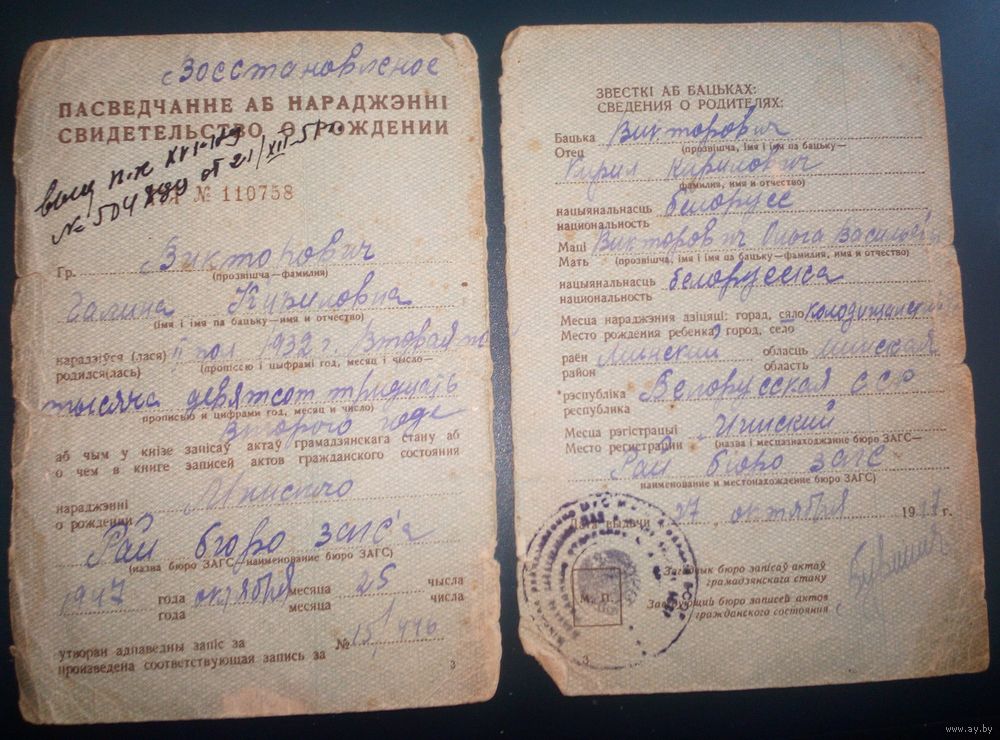 Восстановленное
ПАСВЕДЧАННЕ АБ НАРАДЖЭННІ
СВИДЕТЕЛЬСТВО О РОЖДЕНИИ
выд п-к XVI-ПЭ
№ 504899 от 21/XII-51г.
№ 110758
Гр. Викторович
(прозвішча—фамилия)
Галина Кириловна
(імя і імя па бацьку—имя и отчество)
нарадзіўся (лася) II пол 1932 г. Вторая по
родился(лась) (пропіссю і цыфрамі год, месяц і чысло—
тысяча девятсот тридцать
прописью и цифрами год, месяц и число)
второго годе
аб чым у кнізе запісаў актаў грамадзянскага стану аб
о чем в книге записей актов гражданского состояния
нараджэнні
о рождении
Рай бюро загс'а
(назва бюро ЗАГС—наименование бюро ЗАГС)
1947 года октября месяца 25 чысла
года месяца числа
утворан адпаведны запіс за №
произведена соответствующая запись за 15/446
3
ЗВЕСТКІ АБ БАЦЬКАХ:
СВЕДЕНИЯ О РОДИТЕЛЯХ:
Бацька Викторович
Отец (прозвішча, імя і імя па бацьку—
Кирил Кирилович
фамилия, имя и отчество)
нацыянальнасць белорусс
национальность
Маці Викторович Ольга Васильев
Мать (прозвішча, імя і імя па бацьку—фамилия, имя и отчество)
нацыянальнасць белорусска
национальность
Месца нараджэння дзіцяці: горад, сяло
Место рождения ребенка: город, село
раён Минский обласць Минская
район область
рэспубліка Белорусская ССР
республика
Месца рэгістрацыі Минский
Место регистрации (назва і месцазнаходжанне бюро ЗАГС—
Рай бюро ЗАГС
наименование и местонахождение бюро ЗАГС)
Дата выдачи 27 октября 1947 г.
Загадчык бюро запісаў актаў
грамадзянскага стану
М. П.
Заведующий бюро записей актов
гражданского состояния
3
www.ay.by